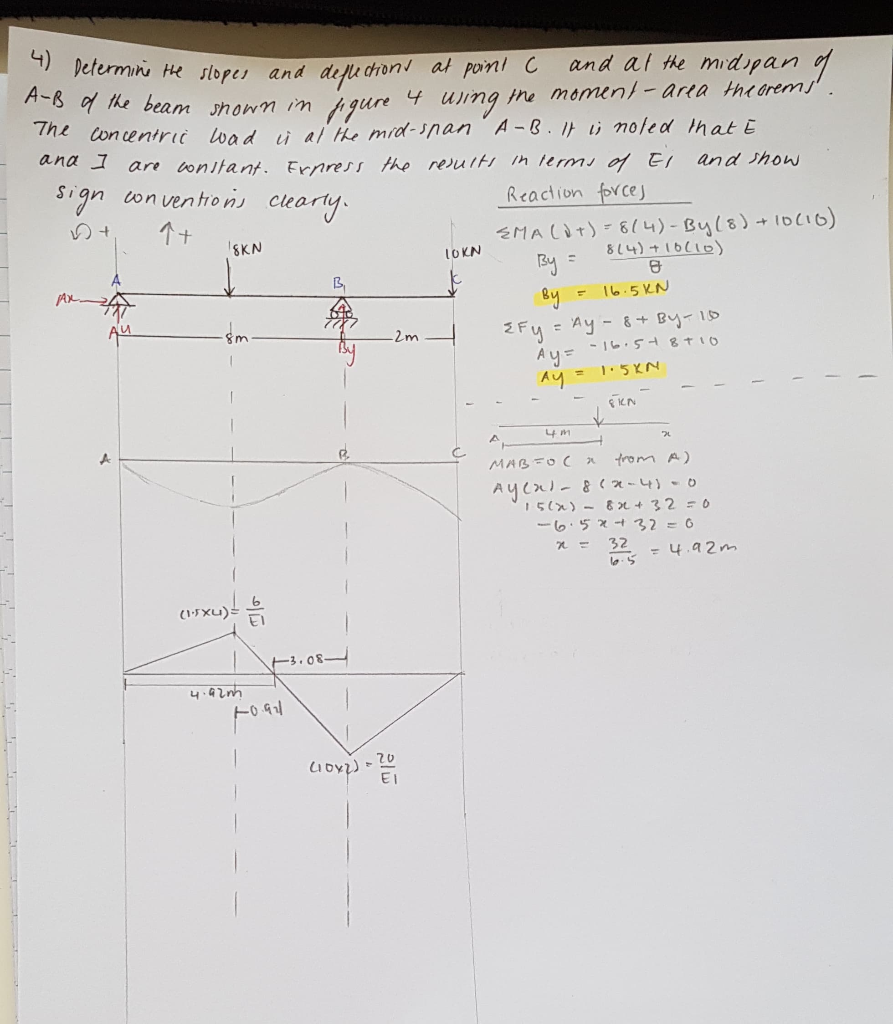 4) Determine the slopes and deflections at point C and at the midspan of
A-B of the beam shown in figure 4 using the moment-area theorems.
The concentric load is at the mid-span A-B. It is noted that E
and I are constant. Express the results in terms of EI and show
sign conventions clearly.
Reaction forces
+ ↑+
ΣMA (+) = 8(4) - By(8) + 10(10)
By = 8(4)+10(10)
8
By = 16.5KN
ΣFy = Ay - 8 + By - 10
Ay = -16.5+8+10
Ay = 1.5KN
8KN
10KN
A
B
C
Ax
Ay
8m
By
2m
8KN
A
4m
x
MAB=0 (x from A)
Ay(x) - 8(x-4) = 0
15(x) - 8x + 32 = 0
-6.5x + 32 = 0
x = 32 = 4.92m
6.5
A
B
C
(1.5x4) = 6
EI
3.08
4.92m
0.92
(10x2) = 20
EI